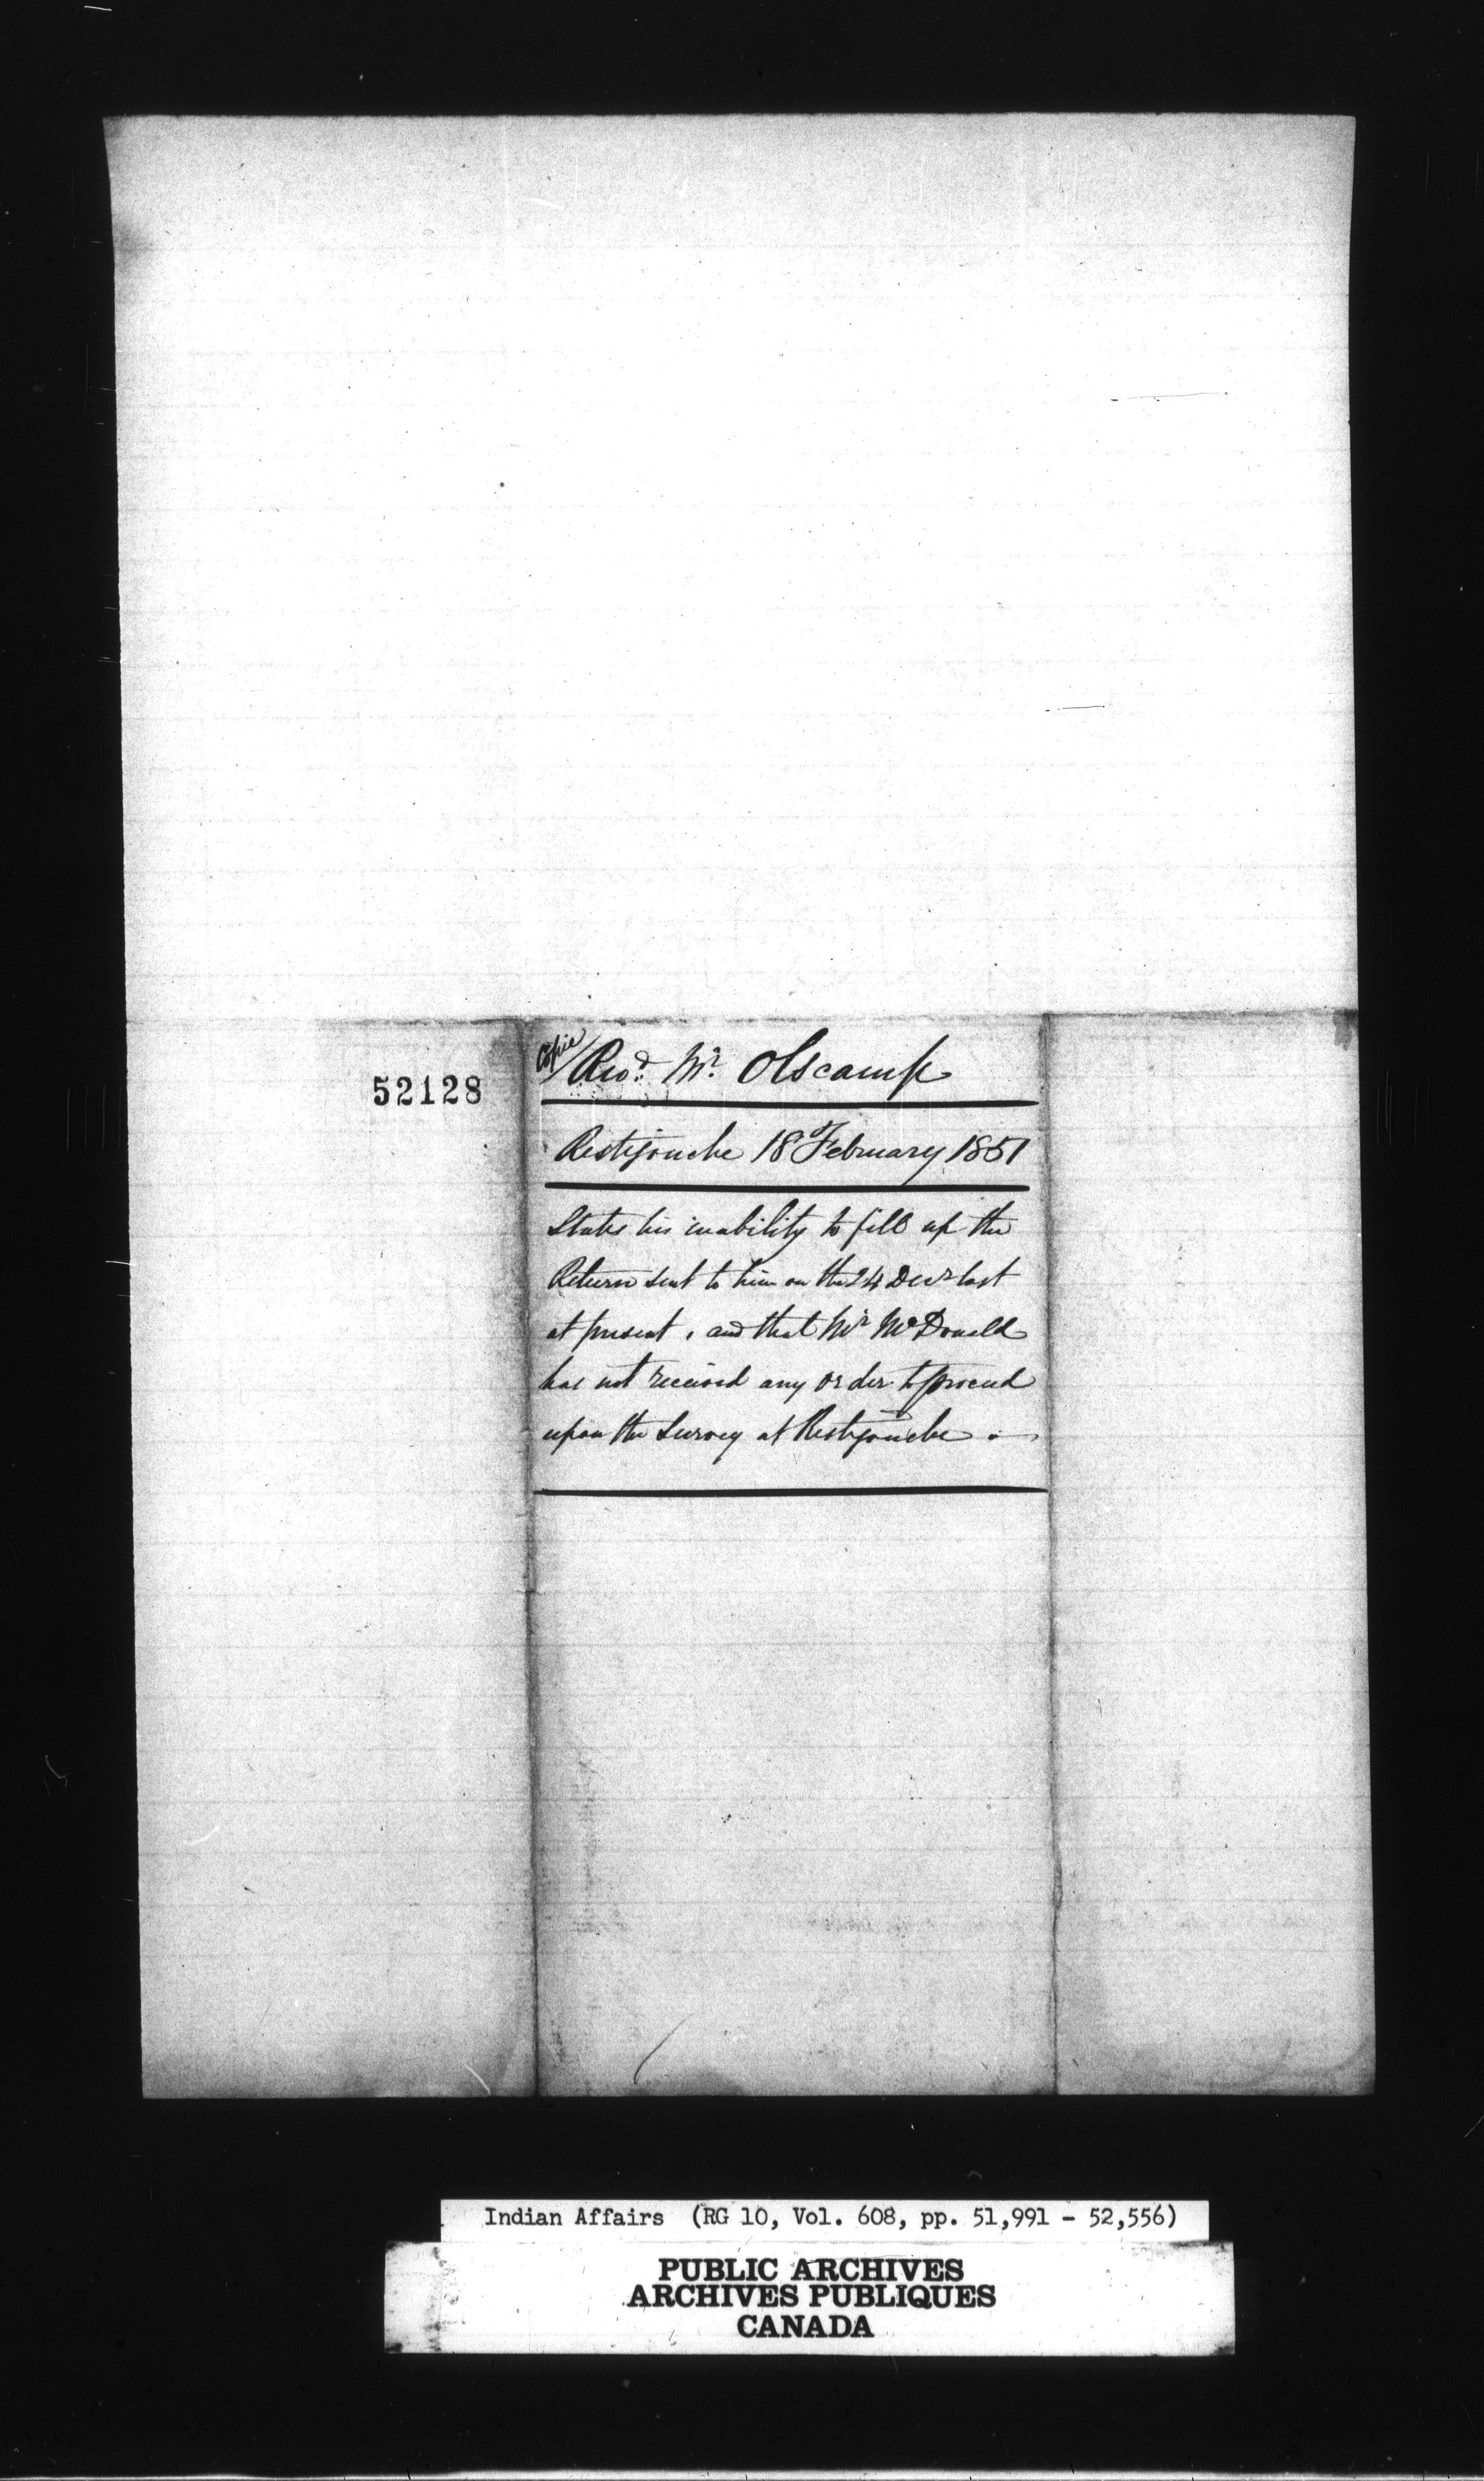 52128
Copie
Revd. Mr. Olscamp
Restigouche 18 February 1851
States his inability to fill up the
Return sent to him on the 24 Decr last
at present, and that Mr McDonald
has not received any order to proceed
upon the Survey at Restigouche.
Indian Affairs (RG 10, Vol. 608, pp. 51,991 - 52,556)
PUBLIC ARCHIVES
ARCHIVES PUBLIQUES
CANADA